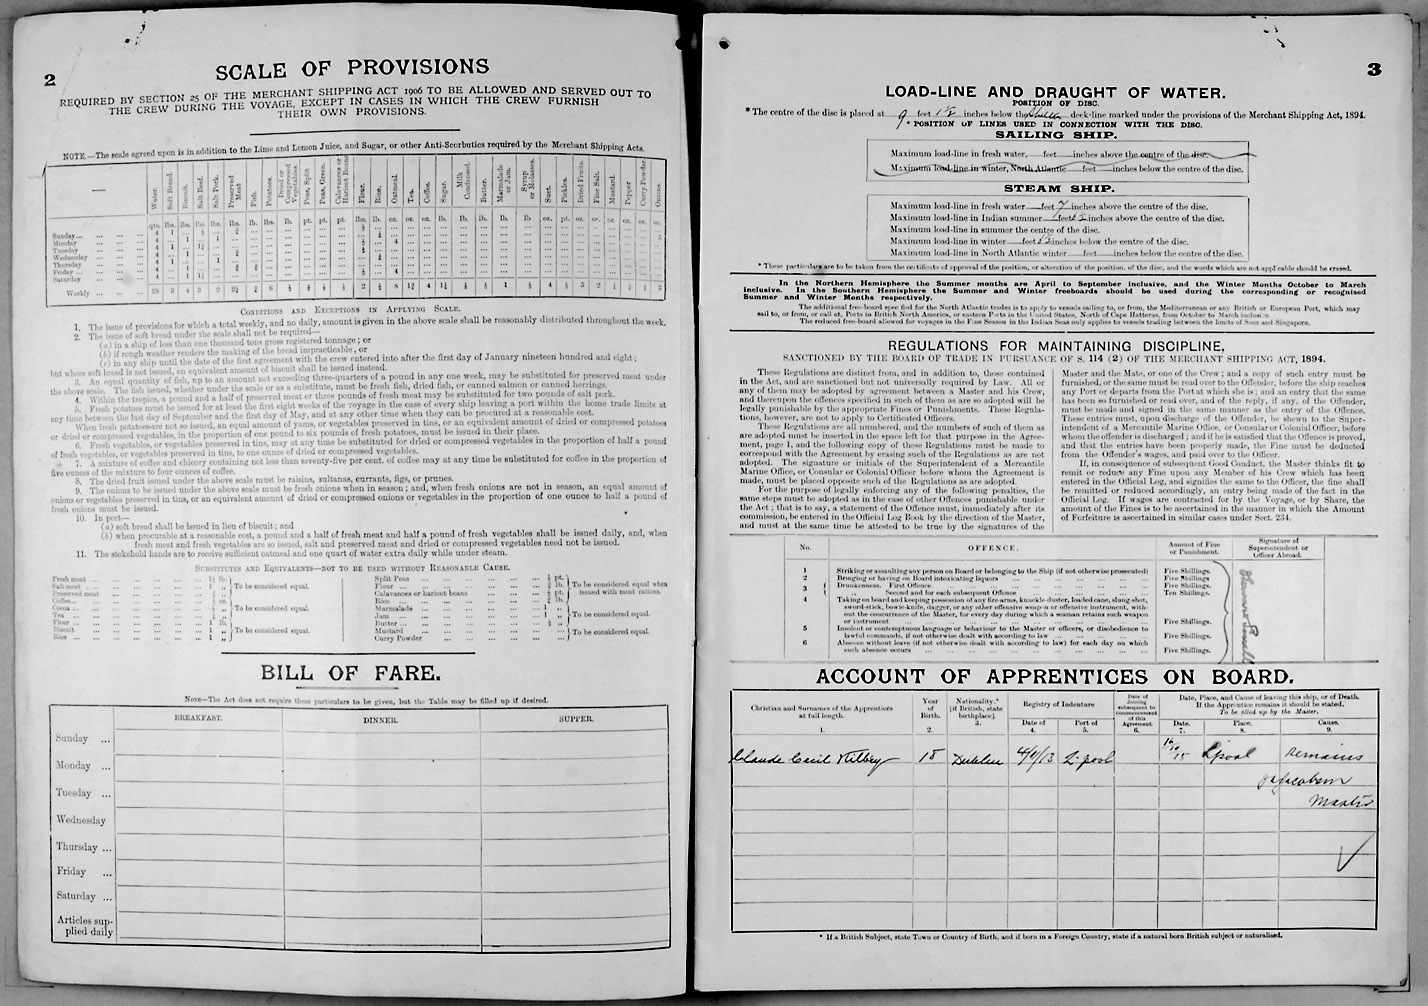 2
SCALE OF PROVISIONS
REQUIRED BY SECTION 25 OF THE MERCHANT SHIPPING ACT 1906 TO BE ALLOWED AND SERVED OUT TO
THE CREW DURING THE VOYAGE, EXCEPT IN CASES IN WHICH THE CREW FURNISH
THEIR OWN PROVISIONS.
NOTE.—The scale agreed upon is in addition to the Lime and Lemon Juice, and Sugar, or other Anti-Scorbutics required by the Merchant Shipping Acts.
Water. Soft Bread. Biscuit. Salt Beef. Salt Pork. Preserved Meat. Fish. Potatoes. Dried or Compressed Vegetables. Peas, Split. Peas, Green. Calavances or Haricot Beans. Flour. Rice. Oatmeal. Tea. Coffee. Sugar. Milk Condensed. Butter. Marmalade or Jam. Syrup or Molasses. Suet. Pickles. Dried Fruits. Fine Salt. Mustard. Pepper. Curry Powder. Onions.
Sunday
Monday
Tuesday
Wednesday
Thursday
Friday
Saturday
Weekly
CONDITIONS AND EXCEPTIONS IN APPLYING SCALE.
1. The issue of provisions for which a total weekly, and no daily, amount is given in the above scale shall be reasonably distributed throughout the week.
2. The issue of soft bread under the scale shall not be required—
(a) in a ship of less than one thousand tons gross registered tonnage; or
(b) if rough weather renders the making of the bread impracticable, or
(c) in any ship until the date of the first agreement with the crew entered into after the first day of January nineteen hundred and eight;
but where soft bread is not issued, an equivalent amount of biscuit shall be issued instead.
3. An equal quantity of fish, up to an amount not exceeding three-quarters of a pound in any one week, may be substituted for preserved meat under
the above scale. The fish issued, whether under the scale or as a substitute, must be fresh fish, dried fish, or canned salmon or canned herrings.
4. Within the tropics, a pound and a half of preserved meat or three pounds of fresh meat may be substituted for two pounds of salt pork.
5. Fresh potatoes must be issued for at least the first eight weeks of the voyage in the case of every ship leaving a port within the home trade limits at
any time between the last day of September and the first day of May, and at any other time when they can be procured at a reasonable cost.
When fresh potatoes are not so issued, an equal amount of yams, or vegetables preserved in tins, or an equivalent amount of dried or compressed potatoes
or dried or compressed vegetables, in the proportion of one pound to six pounds of fresh potatoes, must be issued in their place.
6. Fresh vegetables, or vegetables preserved in tins, may at any time be substituted for dried or compressed vegetables in the proportion of half a pound
of fresh vegetables, or vegetables preserved in tins, to one ounce of dried or compressed vegetables.
7. A mixture of coffee and chicory containing not less than seventy-five per cent. of coffee may at any time be substituted for coffee in the proportion of
five ounces of the mixture to four ounces of coffee.
8. The dried fruit issued under the above scale must be raisins, sultanas, currants, figs, or prunes.
9. The onions to be issued under the above scale must be fresh onions when in season; and, when fresh onions are not in season, an equal amount of
onions or vegetables preserved in tins, or an equivalent amount of dried or compressed onions or vegetables in the proportion of one ounce to half a pound of
fresh onions must be issued.
10. In port—
(a) soft bread shall be issued in lieu of biscuit; and
(b) when procurable at a reasonable cost, a pound and a half of fresh meat and half a pound of fresh vegetables shall be issued daily, and, when
fresh meat and fresh vegetables are so issued, salt and preserved meat and dried or compressed vegetables need not be issued.
11. The stokehold hands are to receive sufficient oatmeal and one quart of water extra daily while under steam.
SUBSTITUTES AND EQUIVALENTS—NOT TO BE USED WITHOUT REASONABLE CAUSE.
Fresh meat
Salt meat
Preserved meat
To be considered equal.
Coffee
Cocoa
Tea
To be considered equal.
Flour
Biscuit
Rice
To be considered equal.
Split Peas
Flour
Calavances or haricot beans
Rice
To be considered equal when issued with meat rations.
Marmalade
Jam
Butter
To be considered equal.
Mustard
Curry Powder
To be considered equal.
BILL OF FARE.
NOTE—The Act does not require these particulars to be given, but the Table may be filled up if desired.
BREAKFAST. DINNER. SUPPER.
Sunday ...
Monday ...
Tuesday ...
Wednesday
Thursday ...
Friday ...
Saturday ...
Articles sup-
plied daily
3
LOAD-LINE AND DRAUGHT OF WATER.
POSITION OF DISC.
* The centre of the disc is placed at 9 feet 1½ inches below the deck-line marked under the provisions of the Merchant Shipping Act, 1894.
* POSITION OF LINES USED IN CONNECTION WITH THE DISC.
SAILING SHIP.
Maximum load-line in fresh water, feet inches above the centre of the disc.
Maximum load-line in winter, North Atlantic feet inches below the centre of the disc.
STEAM SHIP.
Maximum load-line in fresh water feet 7 inches above the centre of the disc.
Maximum load-line in Indian summer feet inches above the centre of the disc.
Maximum load-line in summer the centre of the disc.
Maximum load-line in winter feet inches below the centre of the disc.
Maximum load-line in North Atlantic winter feet inches below the centre of the disc.
* These particulars are to be taken from the certificate of approval of the position, or alteration of the position, of the disc, and the words which are not applicable should be erased.
In the Northern Hemisphere the Summer months are April to September inclusive, and the Winter Months October to March
inclusive. In the Southern Hemisphere the Summer and Winter freeboards should be used during the corresponding or recognised
Summer and Winter Months respectively.
The additional free-board specified for the North Atlantic trades is to apply to vessels sailing to, or from, the Mediterranean or any British or European Port, which may
sail to, or from, or call at, Ports in British North America, or eastern Ports in the United States, North of Cape Hatteras, from October to March inclusive.
The reduced free-board allowed for voyages in the Fine Season in the Indian Seas only applies to vessels trading between the limits of Suez and Singapore.
REGULATIONS FOR MAINTAINING DISCIPLINE,
SANCTIONED BY THE BOARD OF TRADE IN PURSUANCE OF S. 114 (2) OF THE MERCHANT SHIPPING ACT, 1894.
These Regulations are distinct from, and in addition to, those contained
in the Act, and are sanctioned but not universally required by Law. All or
any of them may be adopted by agreement between a Master and his Crew,
and thereupon the offences specified in such of them as are so adopted will be
legally punishable by the appropriate Fines or Punishments. These Regula-
tions, however, are not to apply to Certificated Officers.
These Regulations are all numbered, and the numbers of such of them as
are adopted must be inserted in the space left for that purpose in the Agree-
ment, page 1, and the following copy of these Regulations must be made to
correspond with the Agreement by erasing such of the Regulations as are not
adopted. The signature or initials of the Superintendent of a Mercantile
Marine Office, or Consular or Colonial Officer before whom the Agreement is
made, must be placed opposite such of the Regulations as are adopted.
For the purpose of legally enforcing any of the following penalties, the
same steps must be adopted as in the case of other Offences punishable under
the Act; that is to say, a statement of the Offence must, immediately after its
commission, be entered in the Official Log Book by the direction of the Master,
and must at the same time be attested to be true by the signatures of the
Master and the Mate, or one of the Crew; and a copy of such entry must be
furnished, or the same must be read over to the Offender, before the ship reaches
any Port or departs from the Port at which she is; and an entry that the same
has been so furnished or read over, and of the reply, if any, of the Offender,
must be made and signed in the same manner as the entry of the Offence.
These entries must, upon discharge of the Offender, be shewn to the Super-
intendent of a Mercantile Marine Office, or Consular or Colonial Officer, before
whom the offender is discharged; and if he is satisfied that the Offence is proved,
and that the entries have been properly made, the Fine must be deducted
from the Offender's wages, and paid over to the Officer.
If, in consequence of subsequent Good Conduct, the Master thinks fit to
remit or reduce any Fine upon any Member of his Crew which has been
entered in the Official Log, and signifies the same to the Officer, the fine shall
be remitted or reduced accordingly, an entry being made of the fact in the
Official Log. If wages are contracted for by the Voyage, or by Share, the
amount of the Fines is to be ascertained in the manner in which the Amount
of Forfeiture is ascertained in similar cases under Sect. 234.
No. OFFENCE. Amount of Fine or Punishment. Signature of Superintendent or Officer Abroad.
1 Striking or assaulting any person on Board or belonging to the Ship (if not otherwise prosecuted) Five Shillings.
2 Bringing or having on Board intoxicating liquors Five Shillings
3 Drunkenness. First Offence Five Shillings.
Second and for each subsequent Offence Ten Shillings.
4 Taking on board and keeping possession of any fire-arms, knuckle-duster, loaded cane, slung-shot,
sword-stick, bowie-knife, dagger, or any other offensive weapon or offensive instrument, with-
out the concurrence of the Master, for every day during which a seaman retains such weapon
or instrument Five Shillings.
5 Insolent or contemptuous language or behaviour to the Master or officers, or disobedience to
lawful commands, if not otherwise dealt with according to law Five Shillings.
6 Absence without leave (if not otherwise dealt with according to law) for each day on which
such absence occurs Five Shillings.
ACCOUNT OF APPRENTICES ON BOARD.
Christian and Surnames of the Apprentices at full length. 1.
Year of Birth. 2.
Nationality.* [if British, state birthplace]. 3.
Registry of Indenture
Date of 4. Port of 5.
Date of Joining subsequent to commencement of this Agreement. 6.
Date, Place, and Cause of leaving this ship, or of Death.
If the Apprentice remains it should be stated.
To be filled up by the Master.
Date. 7. Place. 8. Cause. 9.
Claude Cecil Kilbey 18 Dublin 4/11/13 L'pool 16/10/15 L'pool remains
Jacobson
Master
* If a British Subject, state Town or Country of Birth, and if born in a Foreign Country, state if a natural born British subject or naturalised.